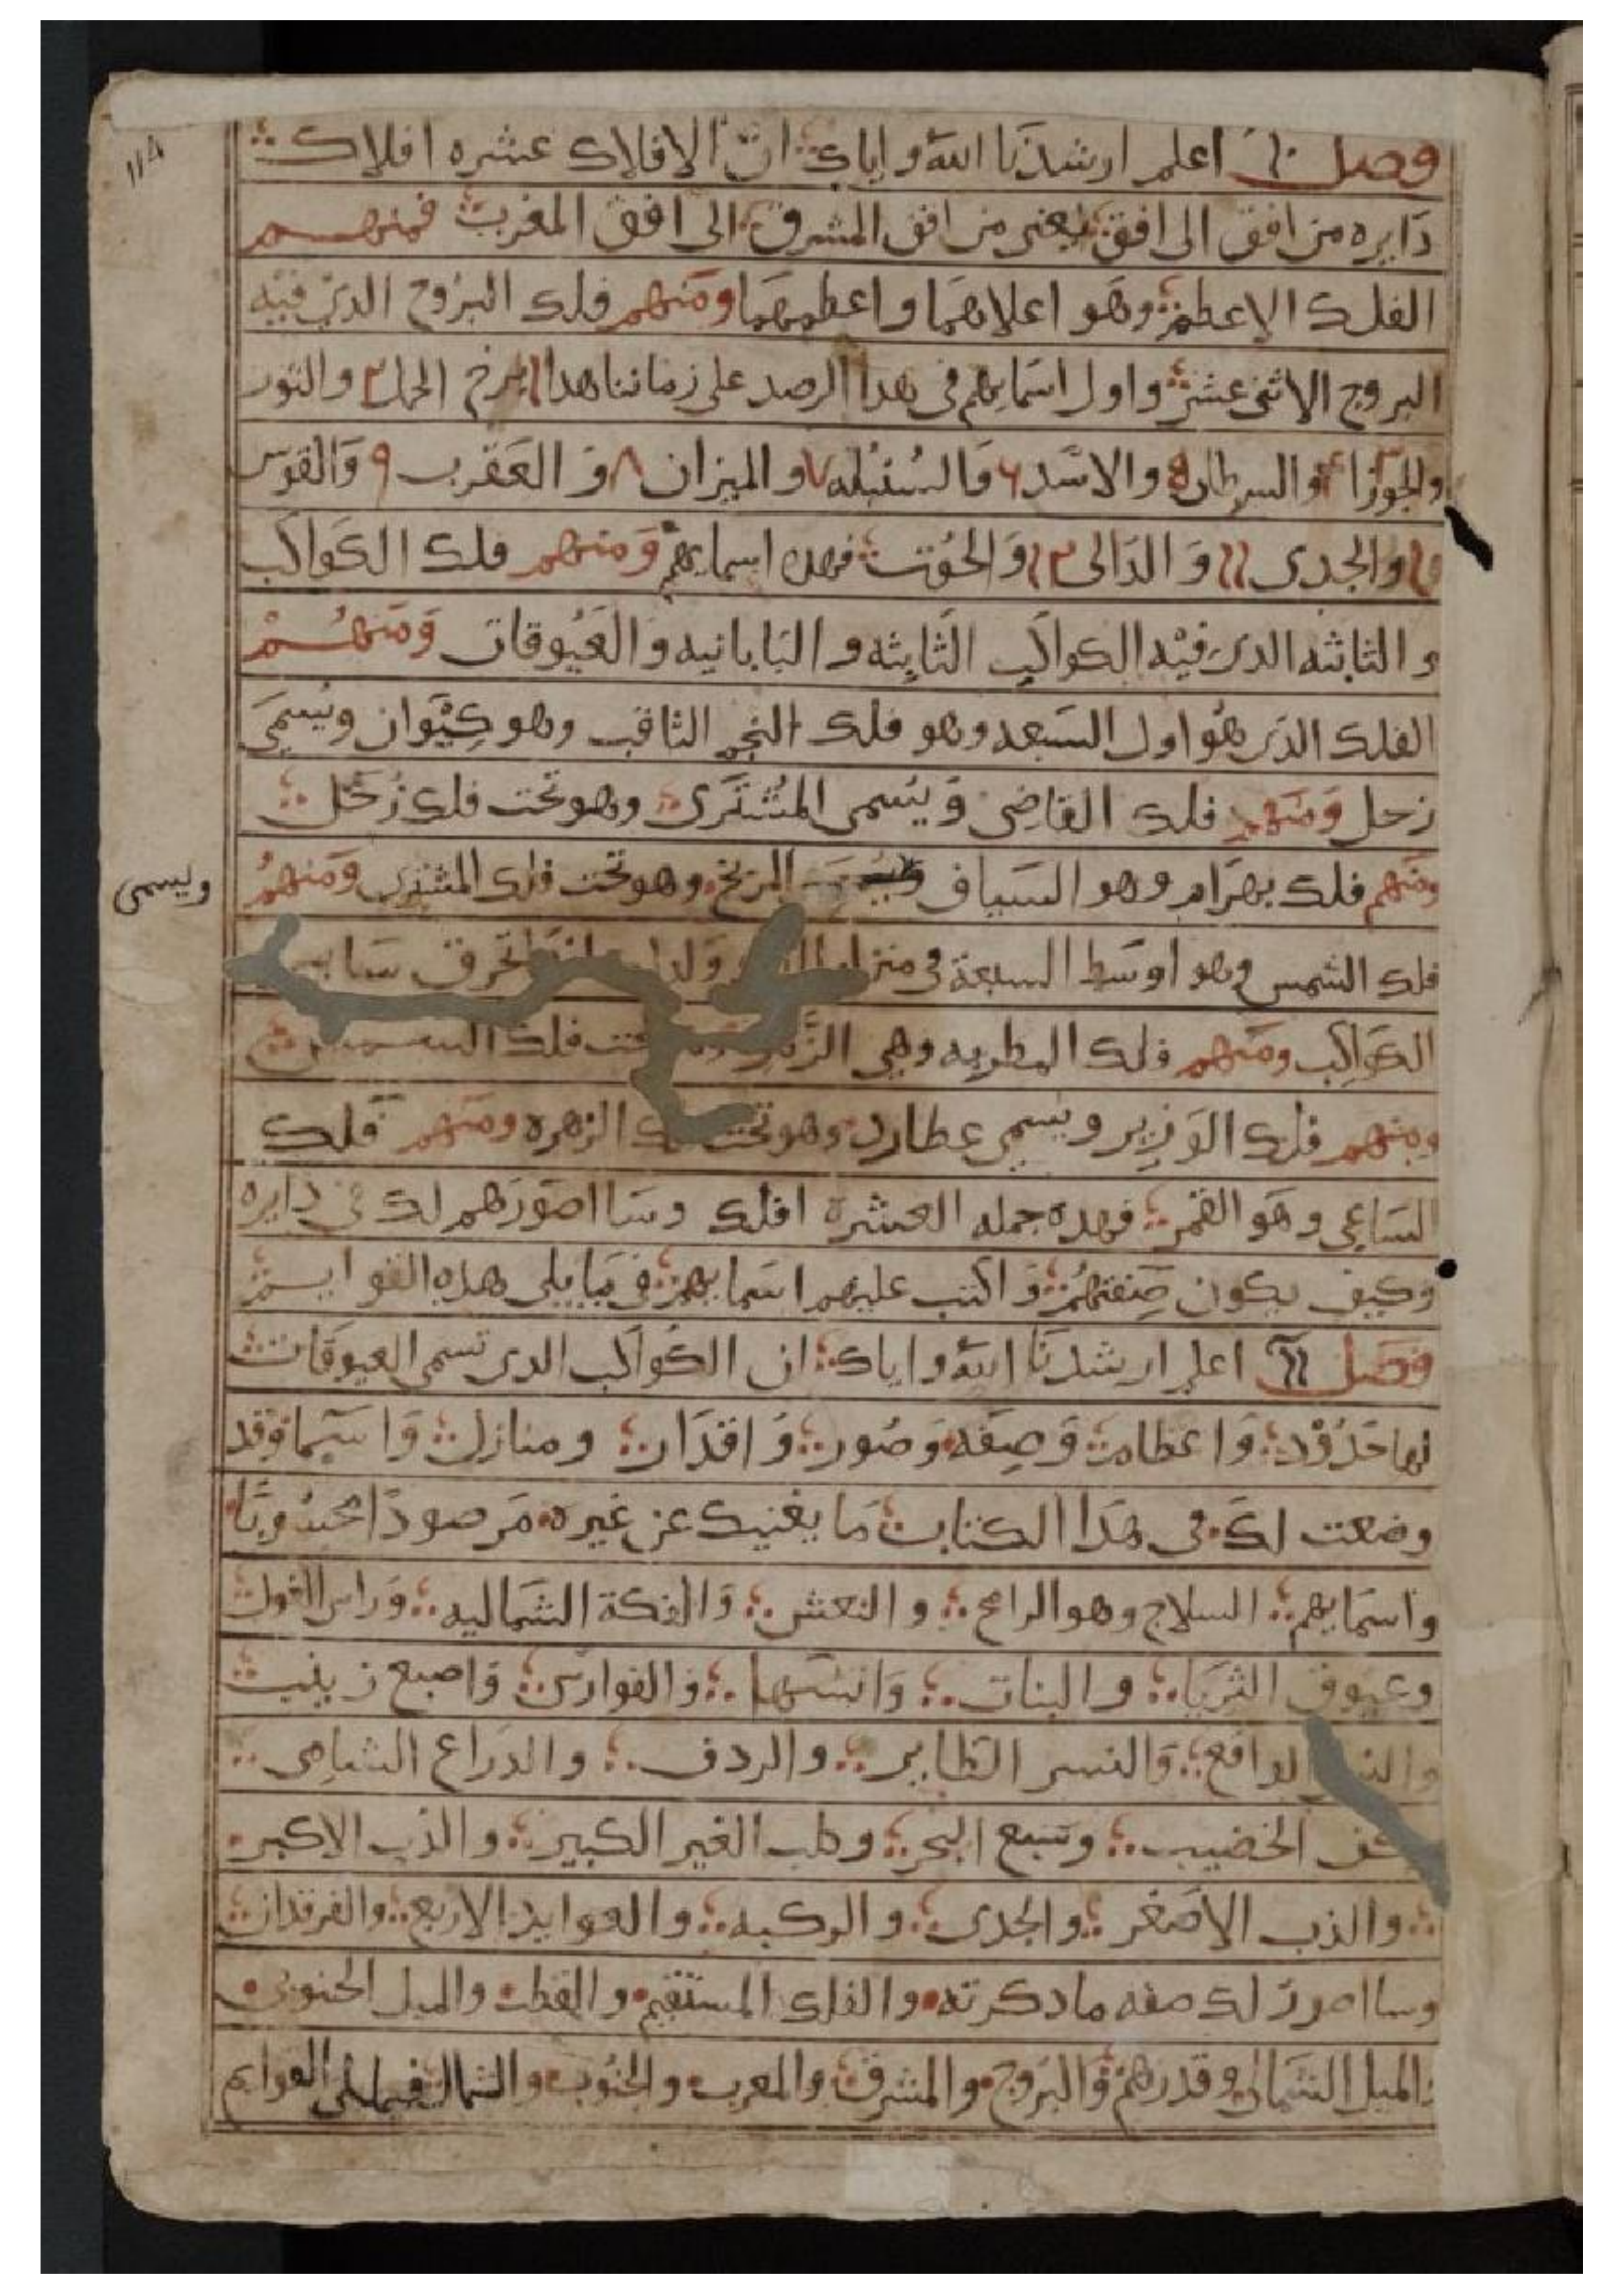 ١١٨
فصل ١٠ اعلم ارشدنا الله واياك ان الافلاك عشره افلاك
دايره من افق الى افق يعنى من افق المشرق الى افق المغرب فمنهم
الفلك الاعظم وهو اعلاهما واعظمهما ومنهم فلك البروج الدى فيه
البروج الاثنى عشر واول اسمايهم فى هدا الرصد على زماننا هدا ١ برج الحمل ٢ والثور
والجوزا ٤ والسرطان ٥ والاسد ٦ والسنبله ٧ والميزان ٨ والعقرب ٩ والقوس
١٠ والجدى ١١ والدالى ١٢ والحوت فهده اسمايهم ومنهم فلك الكواكب
والثابثه الدى فيه الكواكب الثابثه والبابانيه والعيوقات ومنهم
الفلك الدى هو اول السبعه وهو فلك النجم الثاقب وهو كيوان ويسمى
زحل ومنهم فلك القاضى ويسمى المشترى وهو تحت فلك زحل
ومنهم فلك بهرام وهو السياف المريخ وهو تحت فلك المشترى ومنهم
ويسمى
فلك الشمس وهو اوسط السبعة فى تحرق ساير
الكواكب ومنهم فلك المطربه وهى تحت فلك الشمس
ومنهم فلك الوزير ويسمى عطارد وهو تحت الزهره ومنهم فلك
الساعى وهو القمر فهده جمله العشره افلك وسا اصورهم لك فى دايره
وكيف يكون صفتهم واكتب عليهم اسمايهم فى مايلى هذه القوايم
فصل ١١ اعلم ارشدنا الله واياك ان الكواكب الدى تسمى العيوقات
لها حدود واعظام وصفه وصور واقدار ومنازل واسما وقد
وضعت لك فى هدا الكتاب ما يغنيك عن غيره مرصودا
واسمايهم السلاح وهو الرامح والنعش والفكة الشماليه وراس الغول
وعيوق الثريا والبنات والفوارس واصبع زينب
الواقع والنسر الطاير والردف والدراع الشامى
الخضيب وسبع البحر وكلب الغير الكبير والذب الاكبر
والذب الاصغر والجدى والركبه والعوايد الاربع والفرقدان
وسا اصور لك صفه مادكرته والفلك المستقيم والقطب والميل الجنوبى
والميل الشمالى وقدرهم والبروج والمشرق والمغرب والجنوب والشمال فيما يلى القوايم